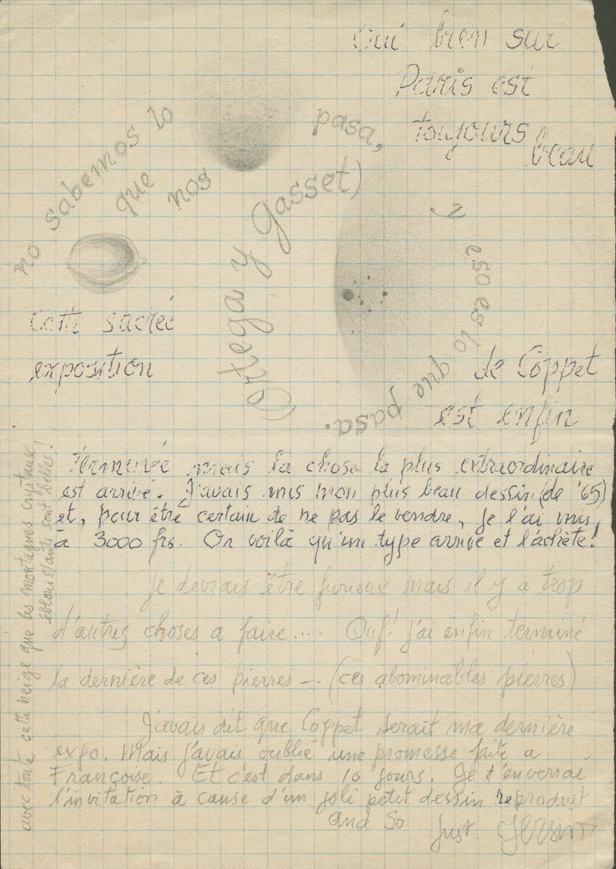 oui bien sur
Paris est
toujours beau
no sabemos lo
que nos pasa,
y eso es lo que pasa.
(Ortega y Gasset)
cette sacrée
exposition
de Coppet
est enfin
terminé mais la chose la plus extraordinaire
est arrivé. J'avais mis mon plus beau dessin (de '65)
et, pour être certain de ne pas le vendre, je l'ai mis
à 3000 frs. On voilà qu'un type arrive et l'achète!
je devrais être furieux mais il y a trop
d'autres choses a faire.... Ouf! j'ai enfin terminé
la dernière de ces pierres -.. (ces abominables pierres)
J'avais dit que Coppet serait ma dernière
expo. Mais j'avais oublié une promesse faite a
Françoise. Et c'est dans 10 jours. Je t'enverrai
l'invitation à cause d'un joli petit dessin reproduit
and so just.
avec toute cette neige que les montagnes
éblouissants sont belles!